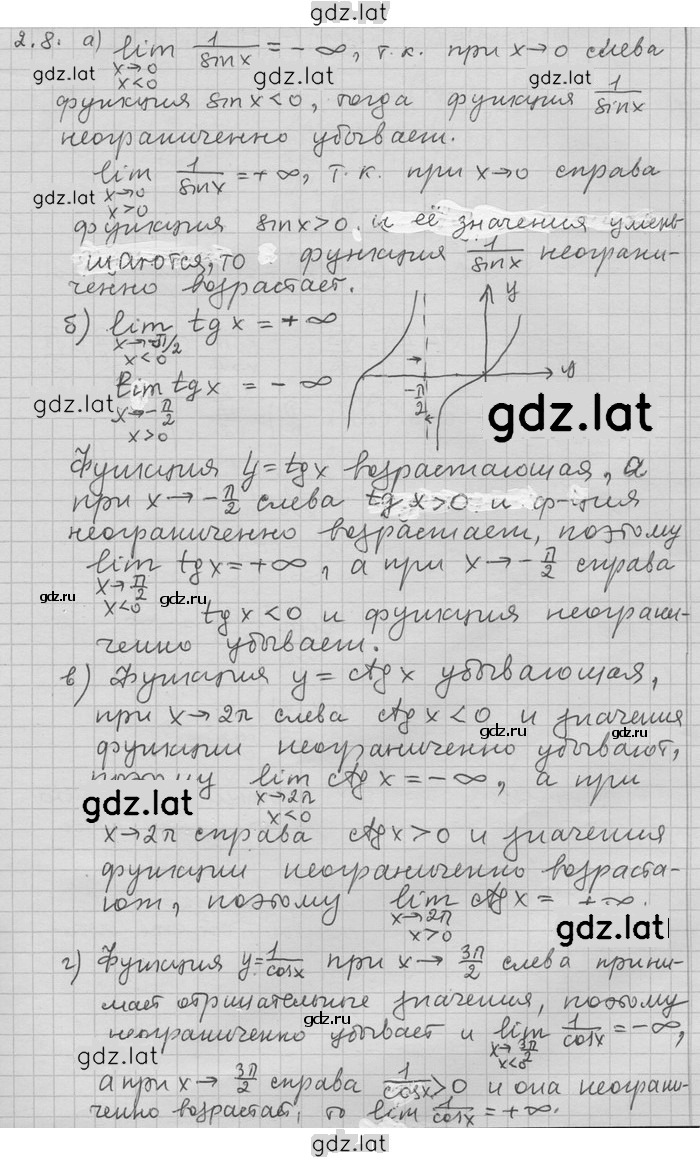 gdz.lat
2.8. а) lim 1/sinx = -∞, т.к. при x→0 слева
x→0
x<0
gdz.lat gdz.lat gdz.lat
функция sinx<0, тогда функция 1/sinx
неограниченно убывает.
lim 1/sinx = +∞, т.к. при x→0 справа
x→0
x>0
gdz.lat
функция sinx>0 и её значения умень
шаются, то функция 1/sinx неограни-
ченно возрастает.
б) lim tgx = +∞
x→-π/2
x<0
y
lim tgx = -∞
x→-π/2
x>0
-π/2
gdz.lat
gdz.lat
Функция y=tgx возрастающая, а
при x→-π/2 слева tgx>0 и ф-ция
неограниченно возрастает, поэтому
lim tgx=+∞, а при x→-π/2 справа
x→π/2
x<0
gdz.ru gdz.ru gdz.ru
tgx<0 и функция неограни-
ченно убывает.
в) Функция y=ctgx убывающая,
при x→2π слева ctgx<0 и значения
gdz.ru gdz.ru gdz.ru
функции неограниченно убывают,
поэтому lim ctgx=-∞, а при
x→2π
x<0
gdz.lat
x→2π справа ctgx>0 и значения
функции неограниченно возраста-
ют, поэтому lim ctgx= +∞.
x→2π
x>0
gdz.lat
г) Функция y=1/cosx при x→3π/2 слева прини-
мает отрицательные значения, поэтому
gdz.ru
неограниченно убывает и lim 1/cosx=-∞,
x→3π/2
x<0
gdz.lat gdz.lat
а при x→3π/2 справа 1/cosx>0 и она неограни-
ченно возрастает, то lim 1/cosx=+∞.
gdz.ru gdz.ru
gdz.lat